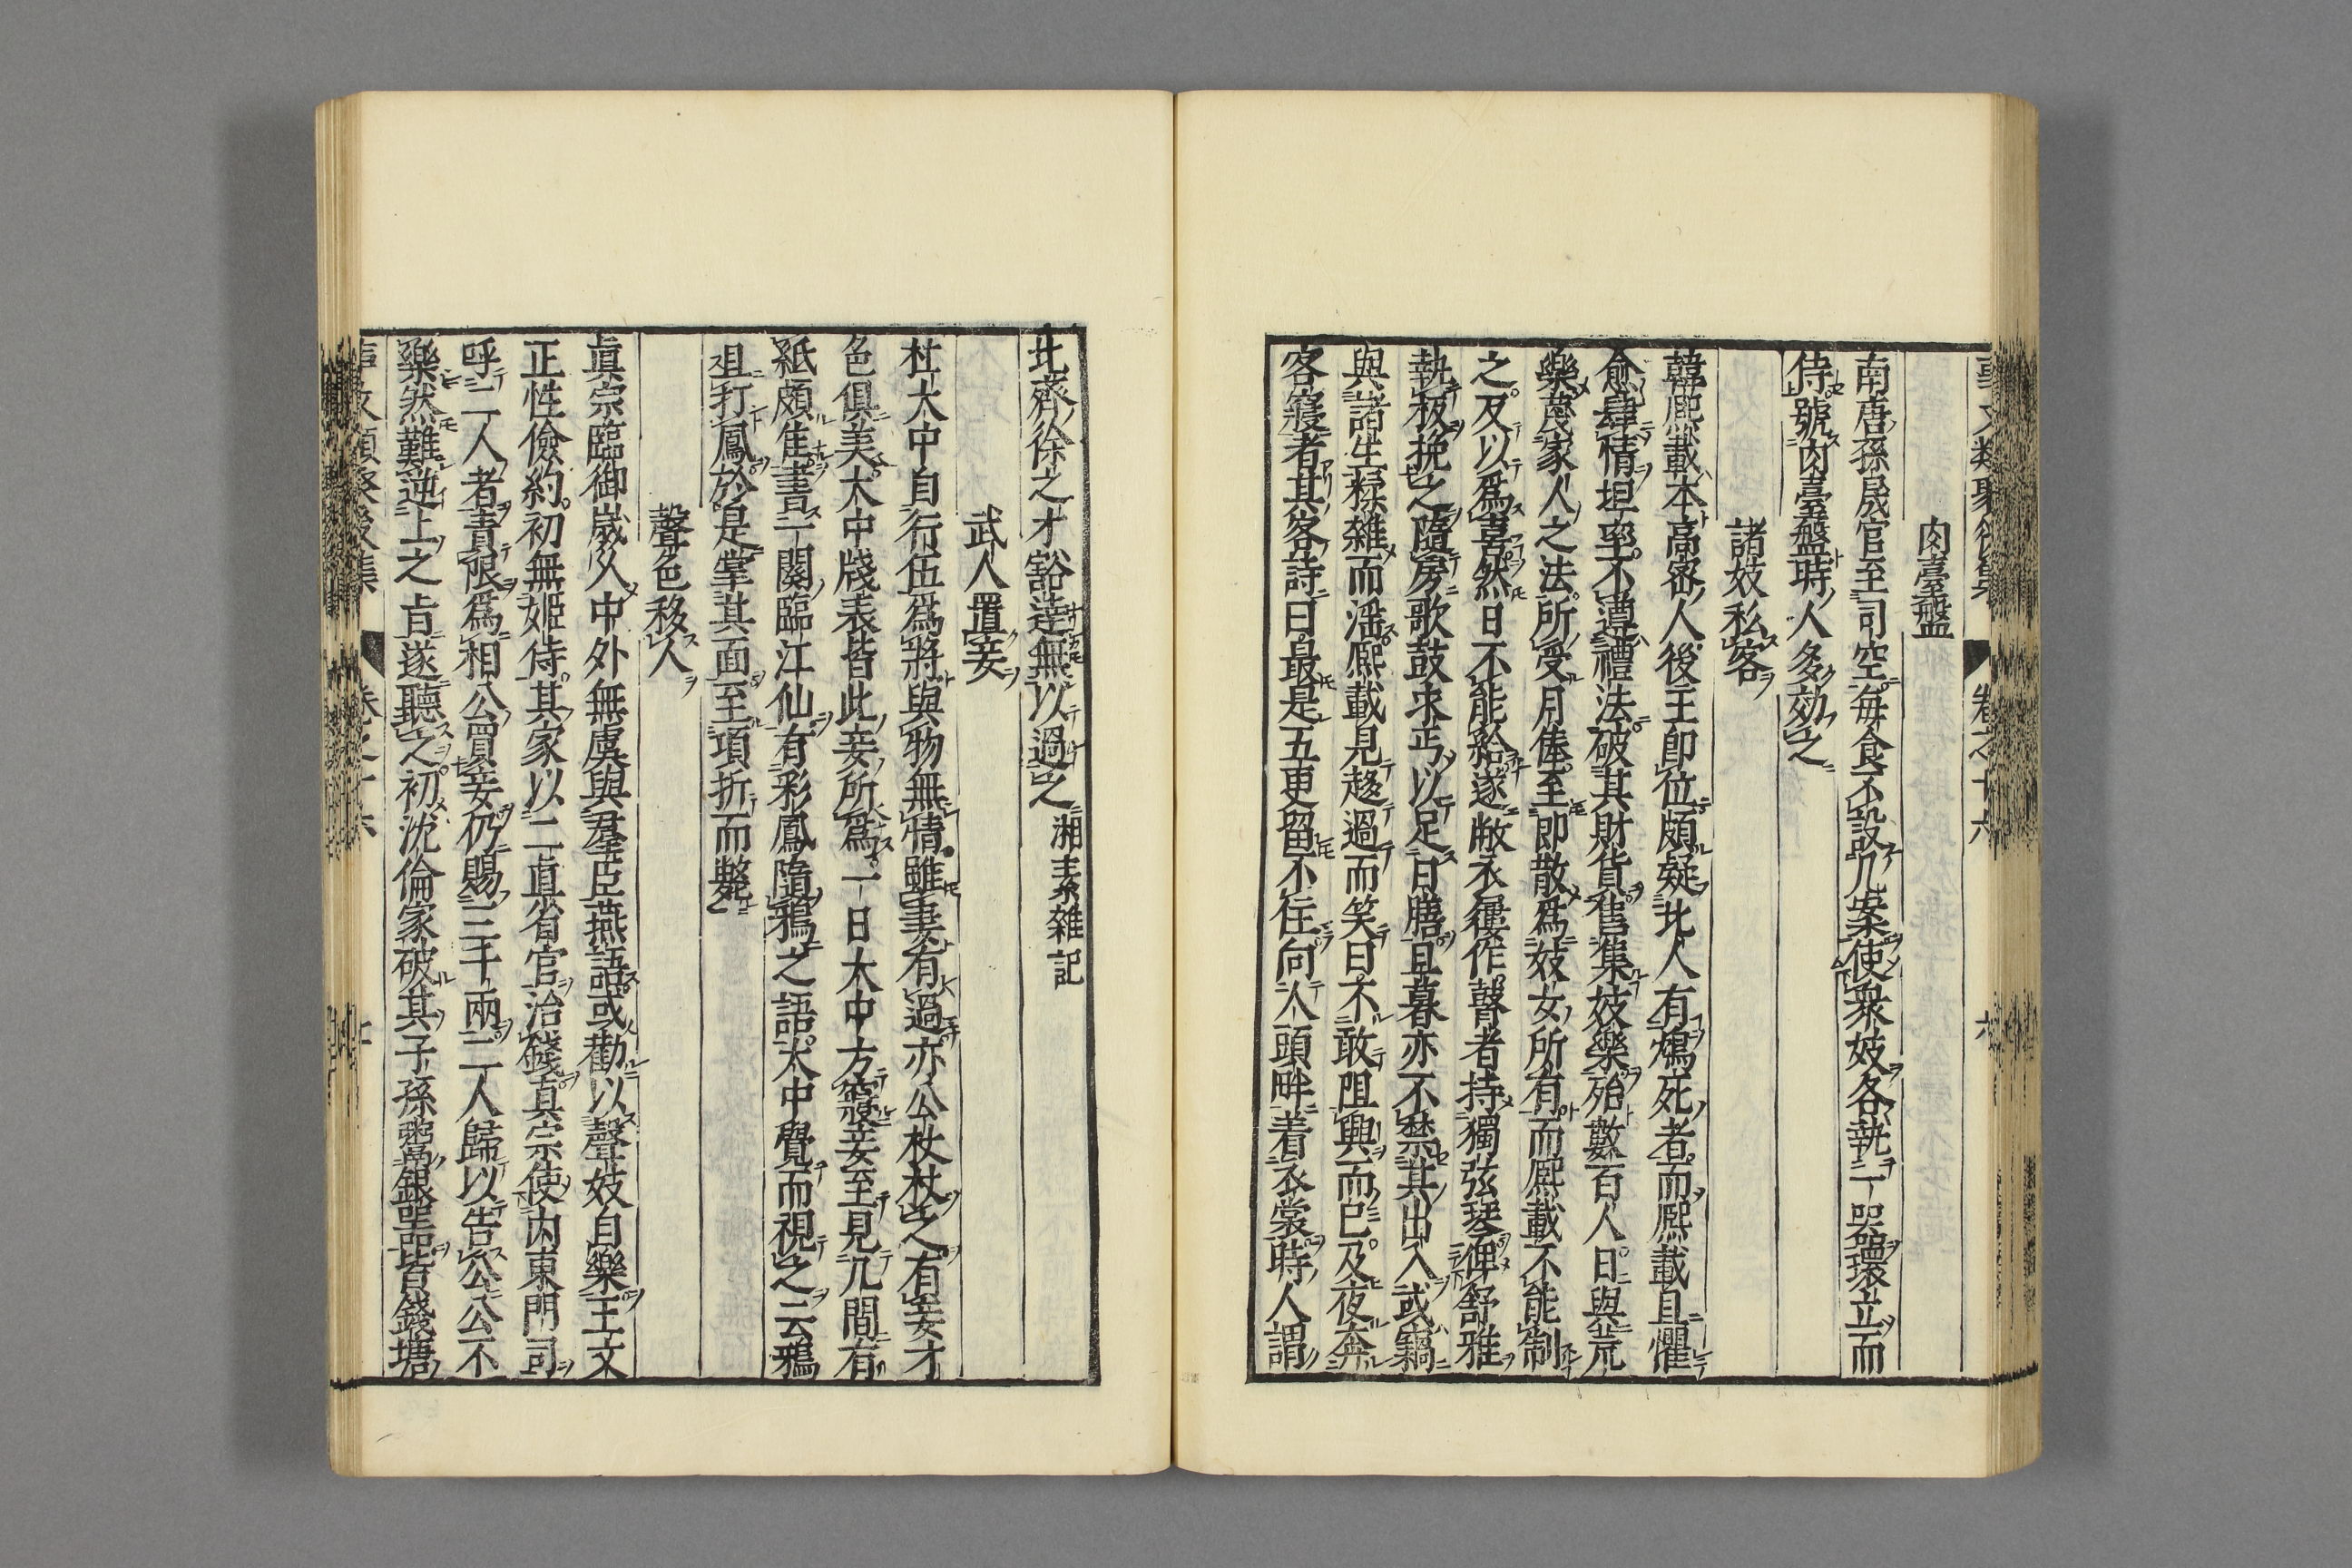 事文類聚後集 卷之十六 六
肉臺盤
南唐孫晟官至司空每食不設几案使衆妓各執一器環立而
侍號肉臺盤時人多効之
諸妓私客
韓熙載本高密人後主卽位頗疑北人有鴆死者而熙載且懼
愈肆情坦率不遵禮法破其財貨售集妓樂殆數百人日與荒
樂蔑家人之法所受月俸至卽散爲妓女所有而熙載不能制
之及以爲喜然日不能給遂敝衣屨作瞽者持獨弦琴俾舒雅
執板挽之隨房歌鼓求丐以足日膳旦暮亦不禁其出入或竊
與諸生糅雜而淫熙載見趍過而笑曰不敢阻興而已及夜奔
客寢者其客詩曰最是五更留不住向人頭畔着衣裳時人謂
北齊徐之才豁達無以過之 湘素雜記
武人置妾
杜大中自行伍爲將與物無情雖妻有過亦公杖杖之有妾才
色俱美大中牋表皆此妾所爲一日大中方寢妾至見几間有
紙頗佳書一闋臨江仙有彩鳳隨鴉之語大中覺而視之云鴉
且打鳳於是掌其面至項折而斃
聲色移人
眞宗臨御歲久中外無虞與羣臣燕語或勸以聲妓自樂王文
正性儉約初無姬侍其家以二直省官治錢眞宗使內東門司
呼二人者責限爲相公買妾仍賜三千兩二人歸以告公公不
樂然難逆上之旨遂聽之初沈倫家破其子孫鬻銀器皆錢塘